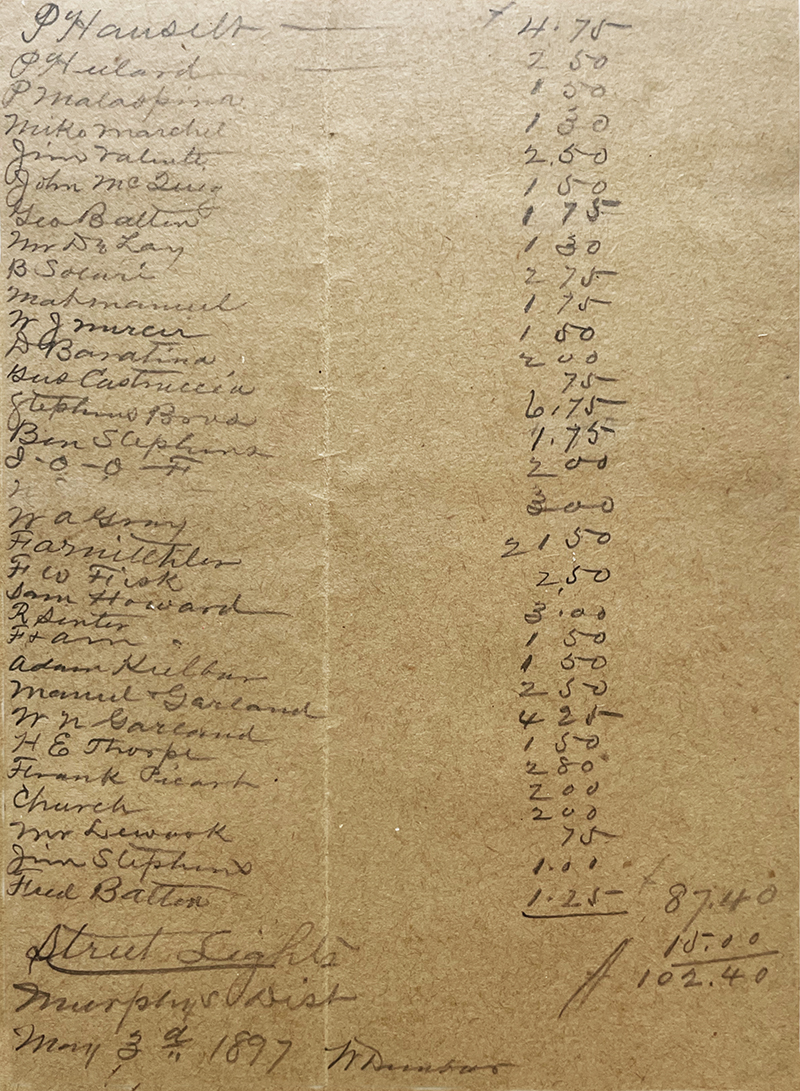 P Hauselt — 4.75
P Heilard — 2 50
P Malaspina 1 50
Mike Marchel 1 30
Jim Valente 2.50
John McQuig 1 50
Geo Batten 1 75
Mr De Lay 1 30
B Solari 2 75
Mat Manuel 1 75
W J Mercer 1 50
D Baratino 2 00
Gus Castruccia 75
Stephens Bros 6.75
Ben Stephens 1.75
I-O-O-F 2 00
W A Gray 3 00
2 1 50
F W Fisk 2,50
Sam Howard 3.00
R Senter 1 50
F & am " 1 50
Adam 2 50
Manuel & Garland 4 25
W N Garland 1 50
H E Thorpe 2 80
Frank Picart 2 00
Church 2 00
Mr 75
Jim Stephens 1.00
Fred Batten 1.25 87.40
15.00
Street Lights 102.40
Murphys Dist
May 3d 1897 W Dunbar